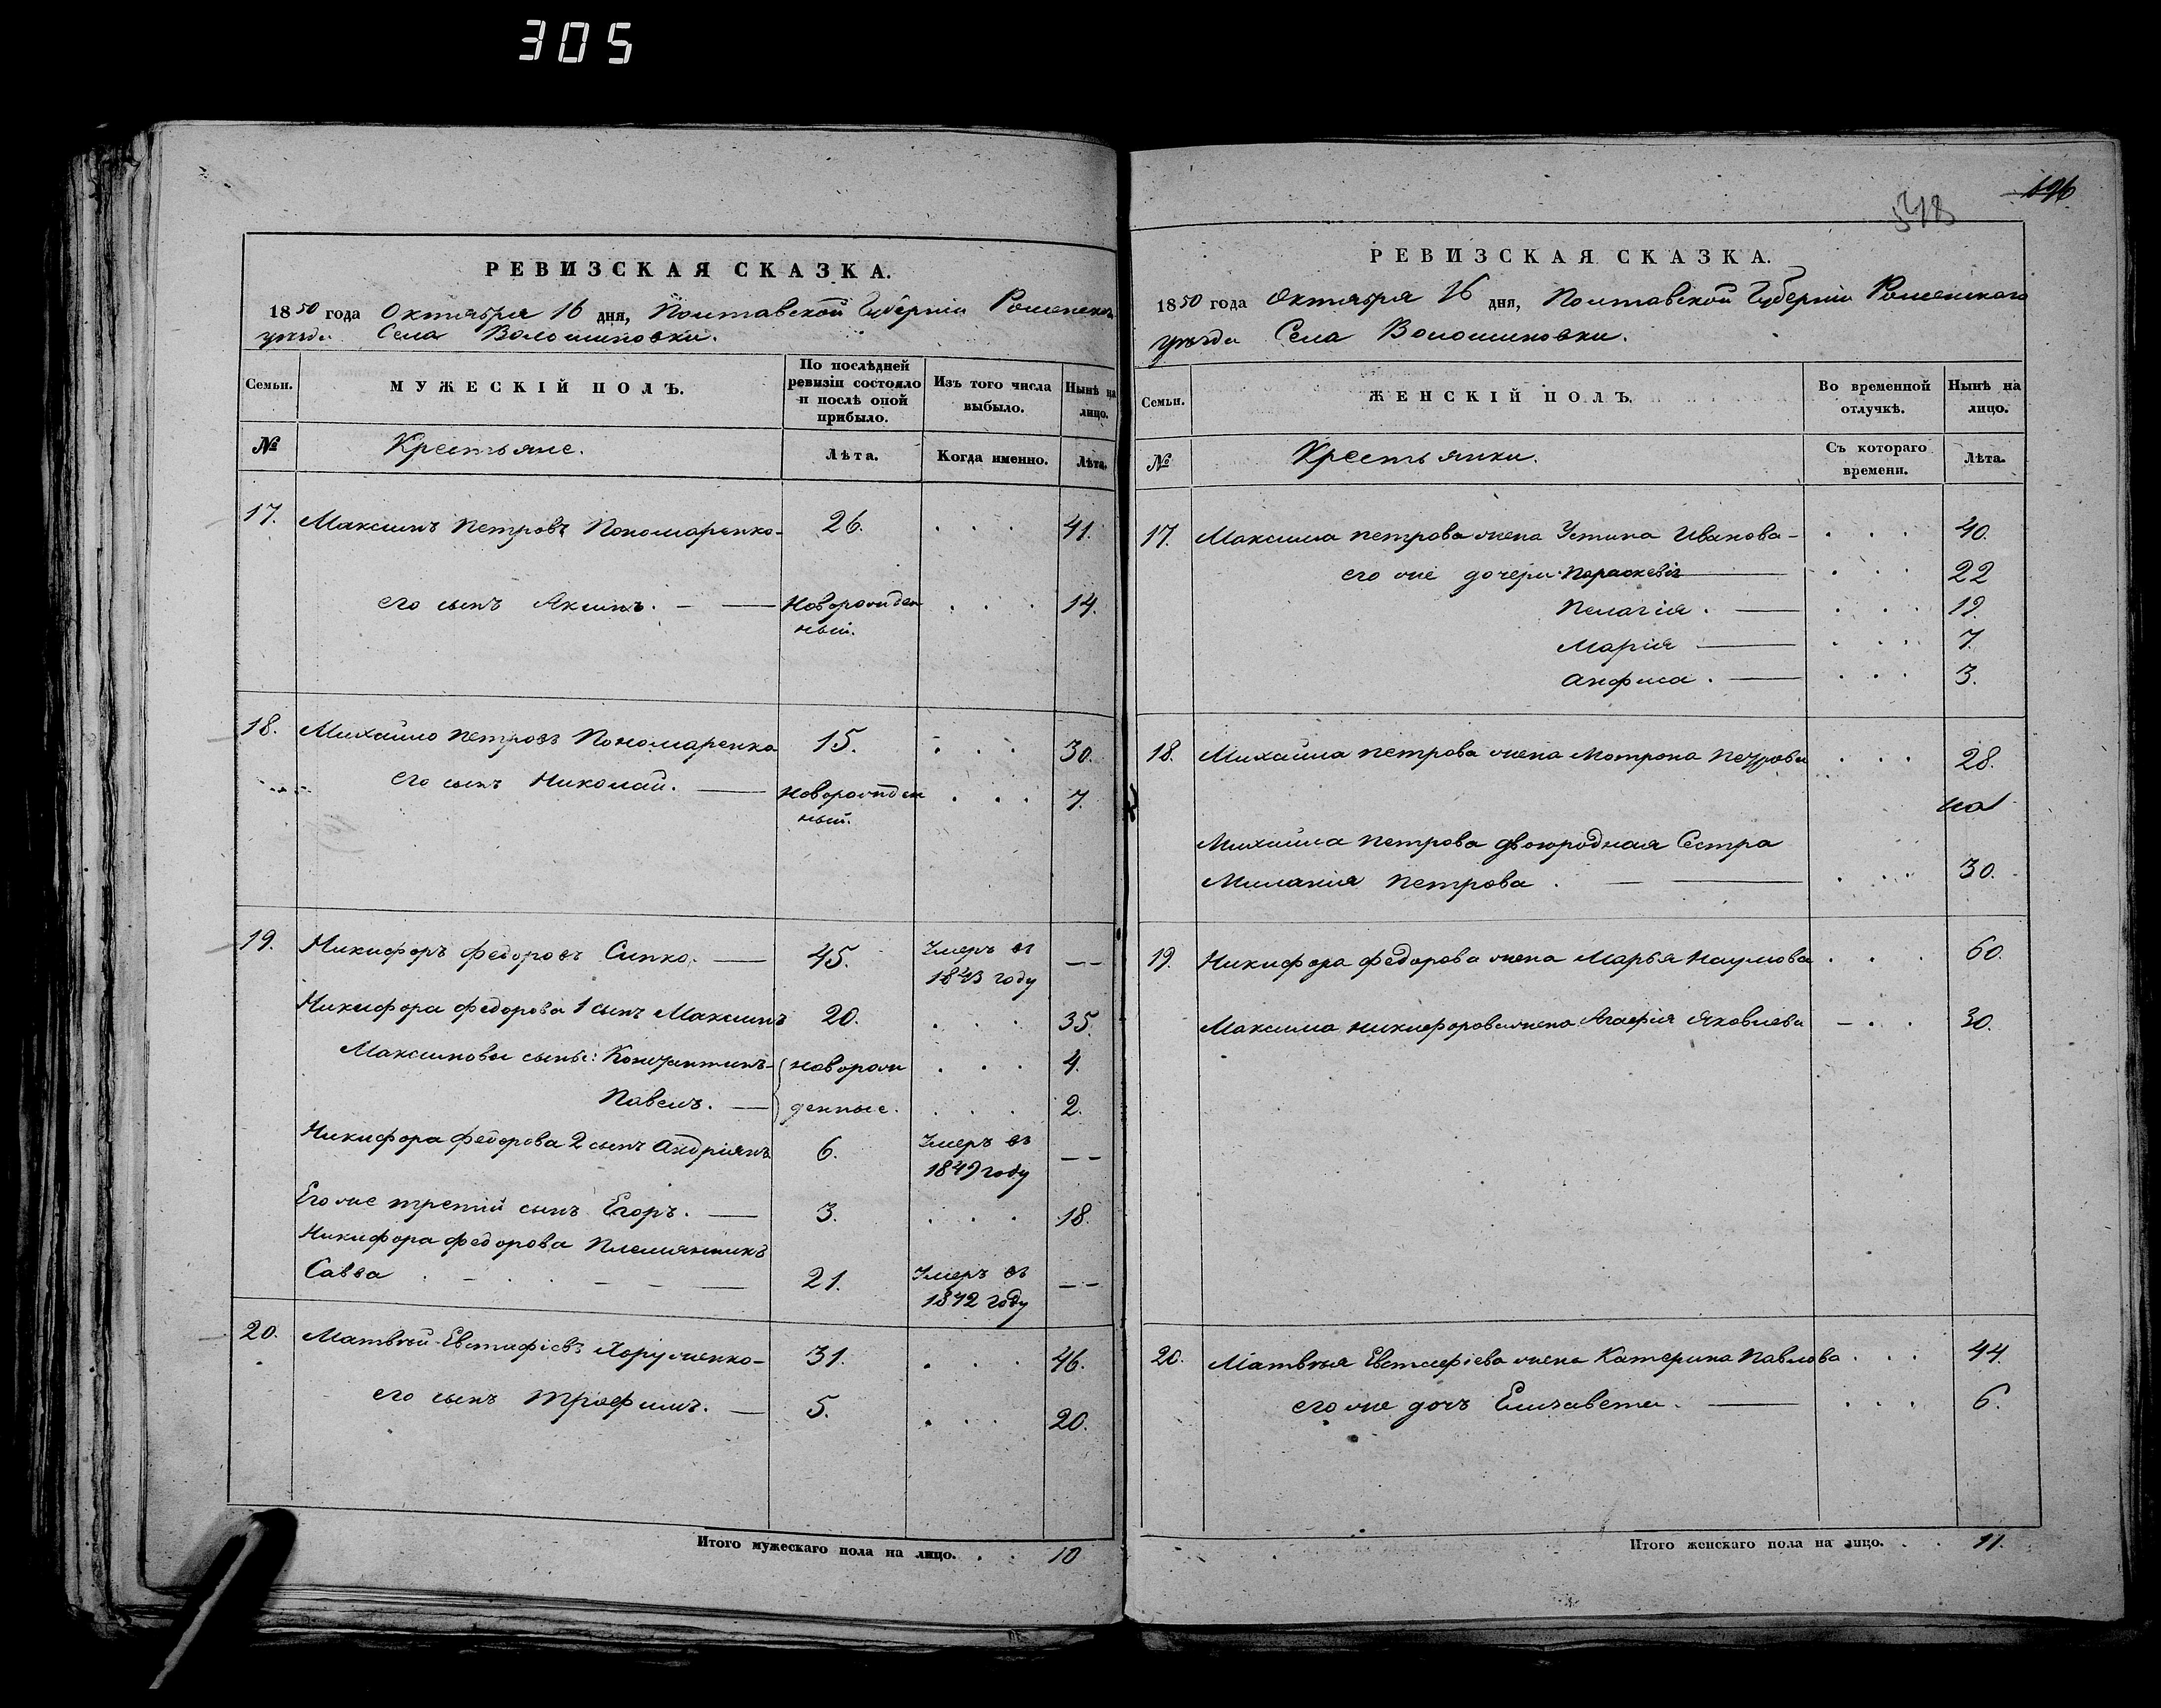 305
РЕВИЗСКАЯ СКАЗКА.
1850 года Октября 16 дня, Полтавской Губерніи Роменскаго
уѣзда Села Волошиновки.
Семьи.
МУЖЕСКІЙ ПОЛЪ.
По послѣдней ревизіи состояло и послѣ оной прибыло.
Изъ того числа выбыло.
Нынѣ на лицо.
№
Крестьяне.
Лѣта.
Когда именно.
Лѣта.
17. Максимъ Петровъ Пономаренко 26. . . . 41.
его сынъ Акимъ. — Новорожден . . . 14.
ный.
18. Михайло Петровъ Пономаренко 15. . . . 30.
его сынъ Николай. — Новорожден . . . 7.
ный.
19. Никифоръ Федоровъ Сипко. — 45. Умеръ въ — —
1843 году
Никифора Федорова 1 сынъ Максимъ 20. . . . 35.
Максимовы сыны: Константинъ — новорож . . . 4.
Павелъ. — денные. . . . 2.
Никифора Федорова 2 сынъ Андріянъ 6. Умеръ въ — —
1849 году
Его же третій сынъ Егоръ. — 3. . . . 18.
Никифора Федорова Племянникъ
Савва . — . . — — — 21. Умеръ въ — —
1842 году
20. Матвѣй Евстафіевъ Хоруженко — 31. . . . 46.
его сынъ Трофимъ. — 5. . . . 20.
Итого мужескаго пола на лицо. . . 10
696
РЕВИЗСКАЯ СКАЗКА.
1850 года Октября 16 дня, Полтавской Губерніи Роменскаго
уѣзда Села Волошиновки.
Семьи.
ЖЕНСКІЙ ПОЛЪ.
Во временной отлучкѣ.
Нынѣ на лицо.
№
Крестьянки.
Съ котораго времени.
Лѣта.
17. Максима Петрова жена Устина Иванова — . . . 40.
его же дочери Параскевія — . . . 22
Пелагія. — . . . 19.
Марія — . . . 7.
Анфиса. — . . . 3.
18. Михайла Петрова жена Мотрона Петрова . . . 28.
Михайла Петрова двоюродная Сестра
Милания Петрова . — — . . . 30.
19. Никифора Федорова жена Марья Наумова . . . 60.
Максима Никифорова жена Агафія Яковлева — . . 30.
20. Матвѣя Евстафіева жена Катерина Павлова . . . 44.
его же дочь Елизавета. — . . . 6.
Итого женскаго пола на лицо. . . 11.